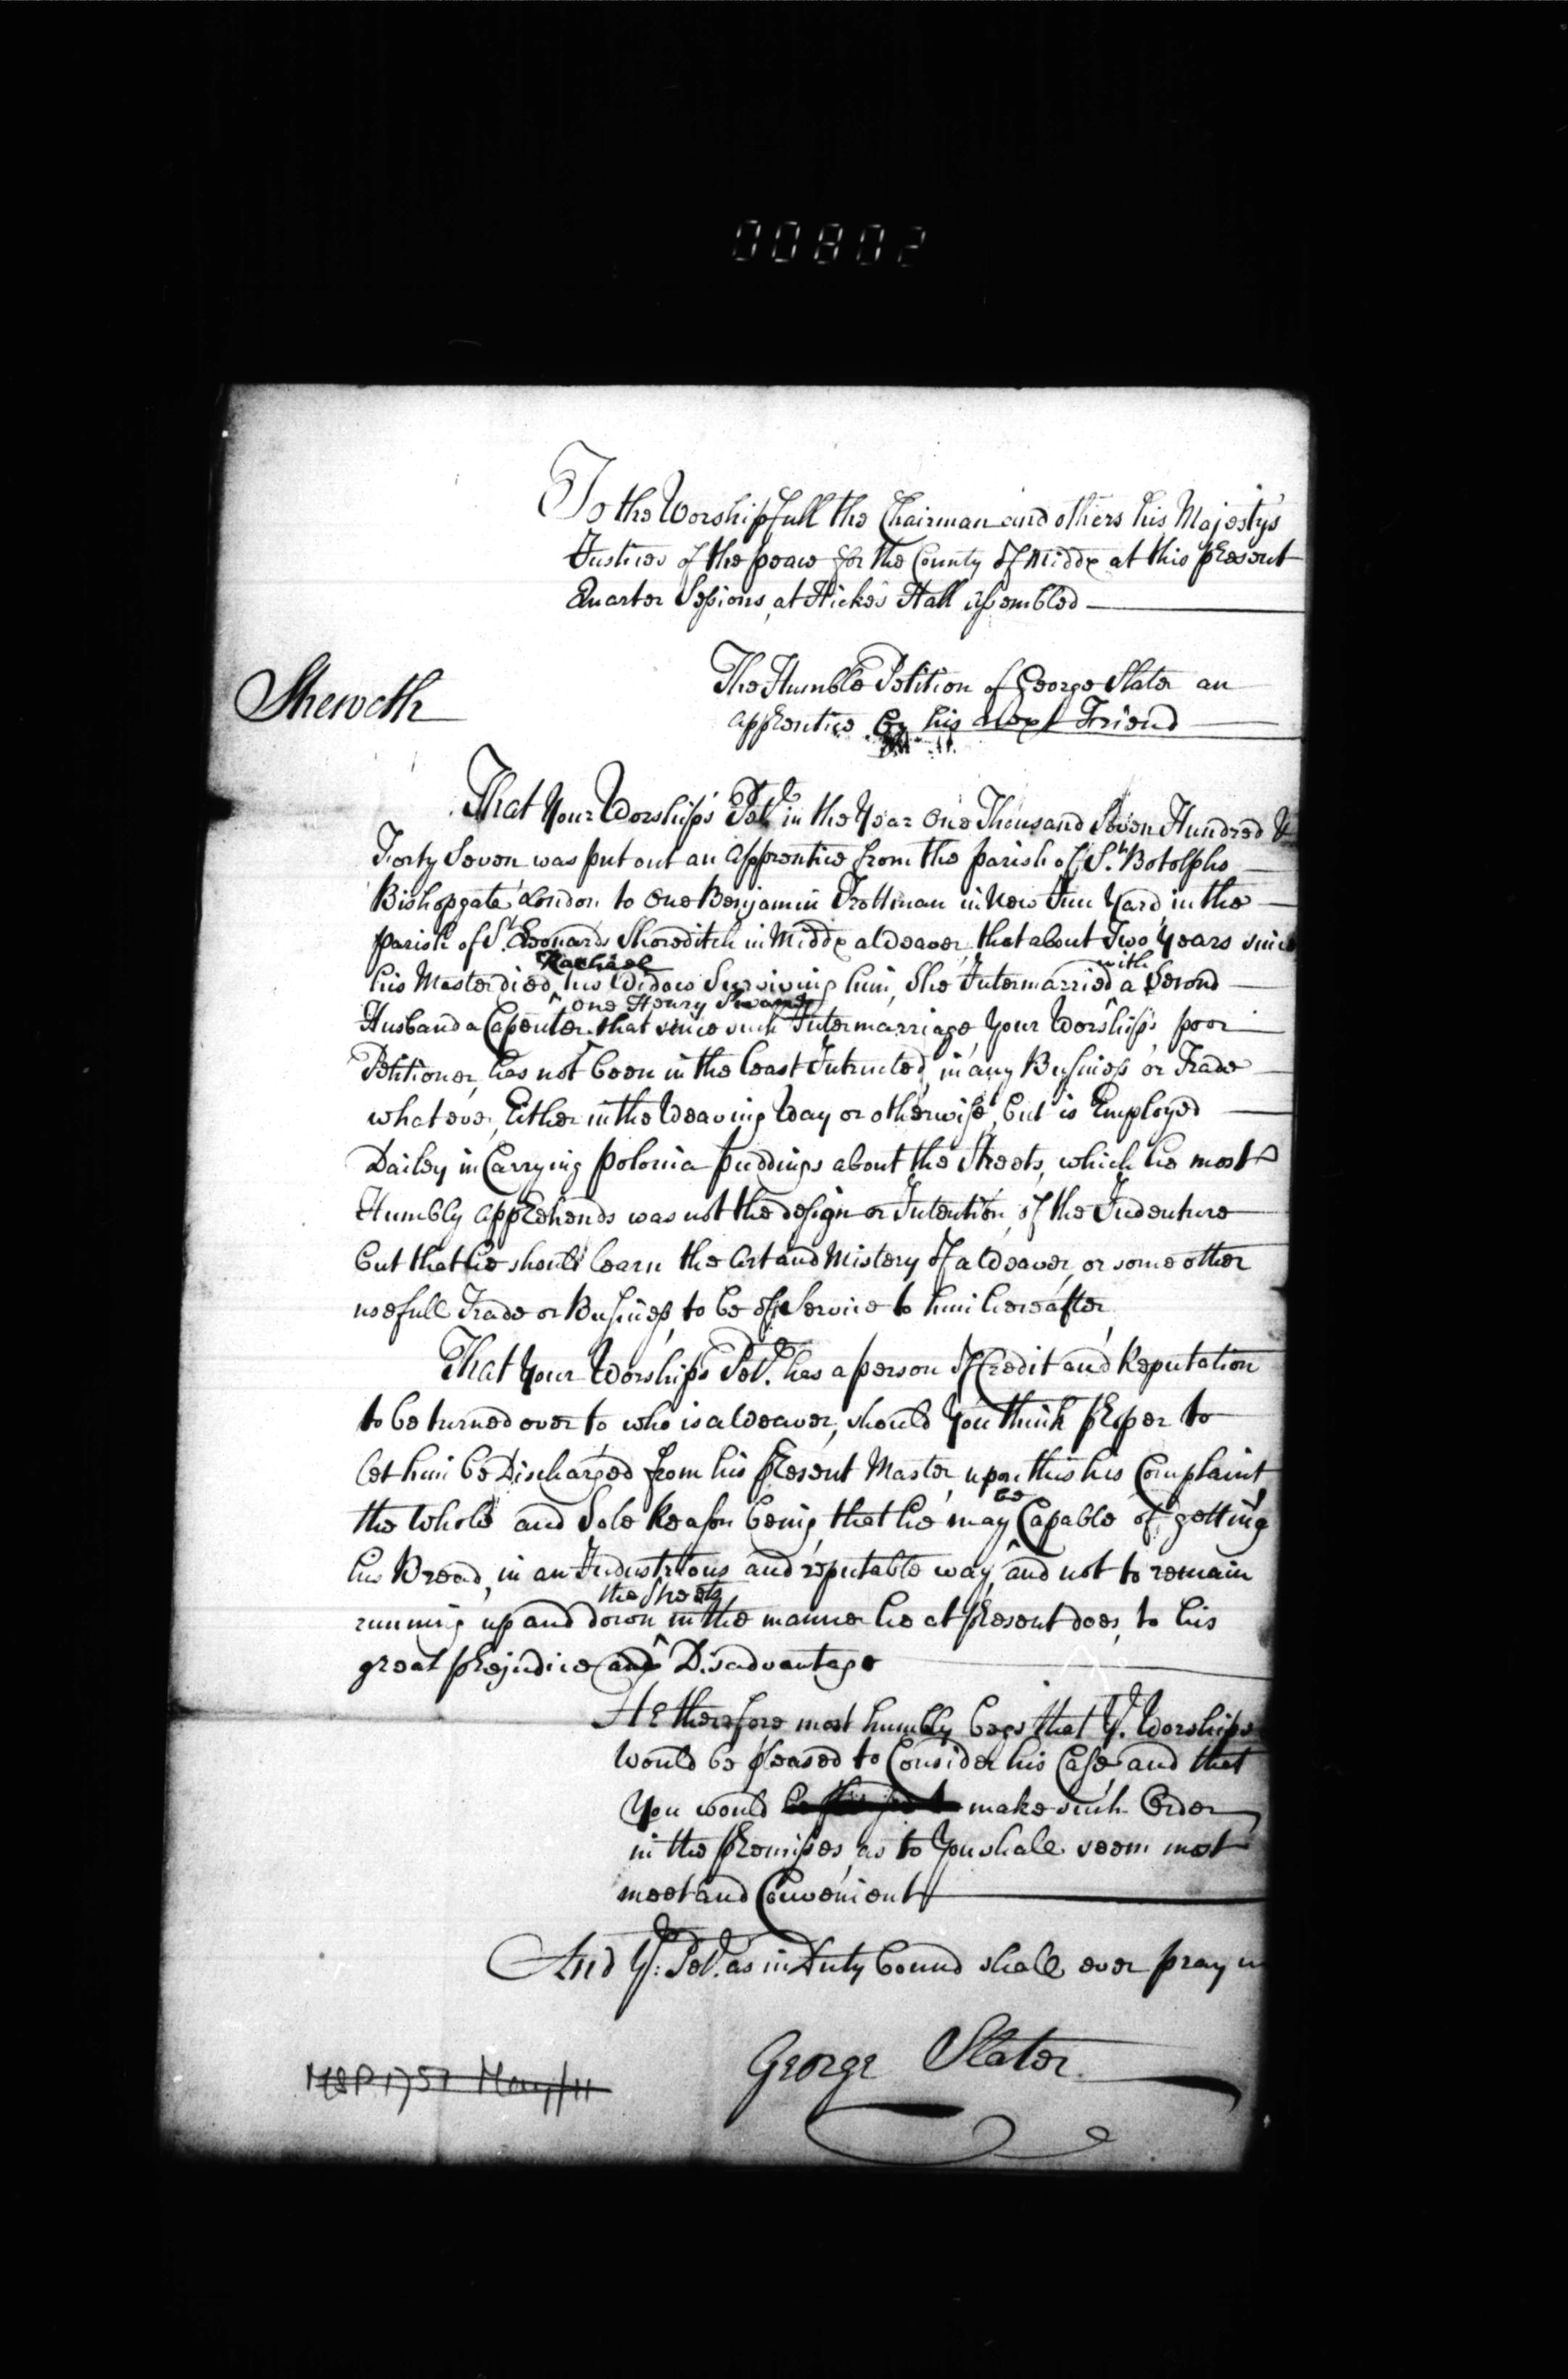 00802
To the Worshipfull the Chairman and others his Majestys
Justices of the peace for the County of Middx at this present
Quarter Sessions, at Hickes Hall assembled
The Humble Petition of George Slater an
apprentice by his next Friend
Sheweth
That Your Worships Petr. in the Year One Thousand Seven Hundred &
Forty Seven was put out an apprentice from the parish of St. Botolphs
Bishopgate London to One Benjamin Trottman in New Inn Yard, in the
parish of St. Leonards Shoreditch in Middx a Weaver, that about Two Years since
Rachael with
his Master died, his Widow Surviving him, She Intermarried a Second
one Henry
Husband a Capenter that since such Intermarriage, Your Worships poor
Petitioner, has not been in the least Intructed, in any Business or Trade
whatever, Either in the Weaving Way or otherwise, but is Employed
Dailey in Carrying polonia puddings about the Streets, which he most
Humbly apprehends was not the design or Intention, of the Indenture
but that he should learn the Art and Mistery of a Weaver, or some other
usefull Trade or Business, to be of Service to him hereafter
That Your Worships Petr. has a person of Credit and Reputation
to be turned over to who is a Weaver, should You think proper to
let him be Discharged from his present Master, upon this his Complaint,
be
the Whole and Sole Reason being, that he may Capable of getting
his Bread, in an Industrious and reputable way, and not to remain
the Streets
running up and down in the manner he at present does, to his
great prejudice and Disadvantage
He therefore most humbly begs that Yr. Worships
would be pleased to Consider his Case, and that
You would make such Order
in the premises, as to You shall seem most
meet and Convenient
And Yr: Petr. as in Duty bound shall ever pray
George Slater
MSP 1752 May/11